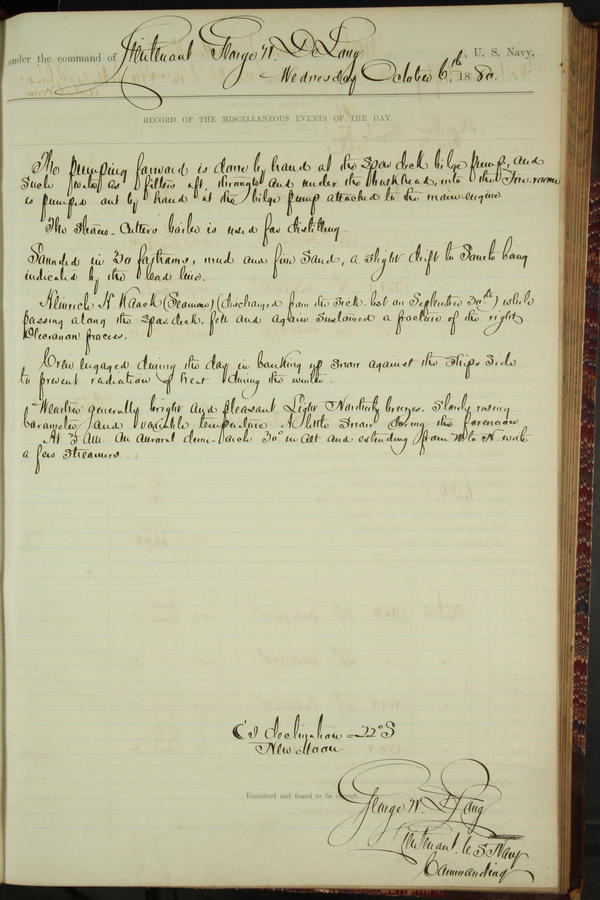 under the command of Lieutenant George W. De Long, U. S. Navy,
Wednesday October 6th, 1880.
RECORD OF THE MISCELLANEOUS EVENTS OF THE DAY.
The pumping forward is done by hand at the spar deck bilge pump, and
such water as filters aft, through and under the bulkhead, into the Fire-room
is pumped out by hand at the bilge pump attached to the main engine
The Steam-Cutters boiler is used for distilling.
Sounded in 30 fathoms, mud and fine sand, a slight drift to South being
indicated by the lead line.
Heinrich H Kaack (Seaman) (discharged from the sick list on September 30th) while
passing along the spar deck fell and again sustained a fracture of the right
Olecranon process.
Crew engaged during the day in banking up snow against the ships side
to prevent radiation of heat during the winter.
Weather generally bright and pleasant Light Northerly breezes. Slowly rising
barometer and variable temperature. A little snow during the forenoon
At 3 A.M. an auroral demi-arch 30° in alt and extending from W to N. with
a few streamers.
☾'s declination = 22° S
New Moon.
Examined and found to be correct.
George W. De Long
Lieutenant. U.S. Navy
Commanding